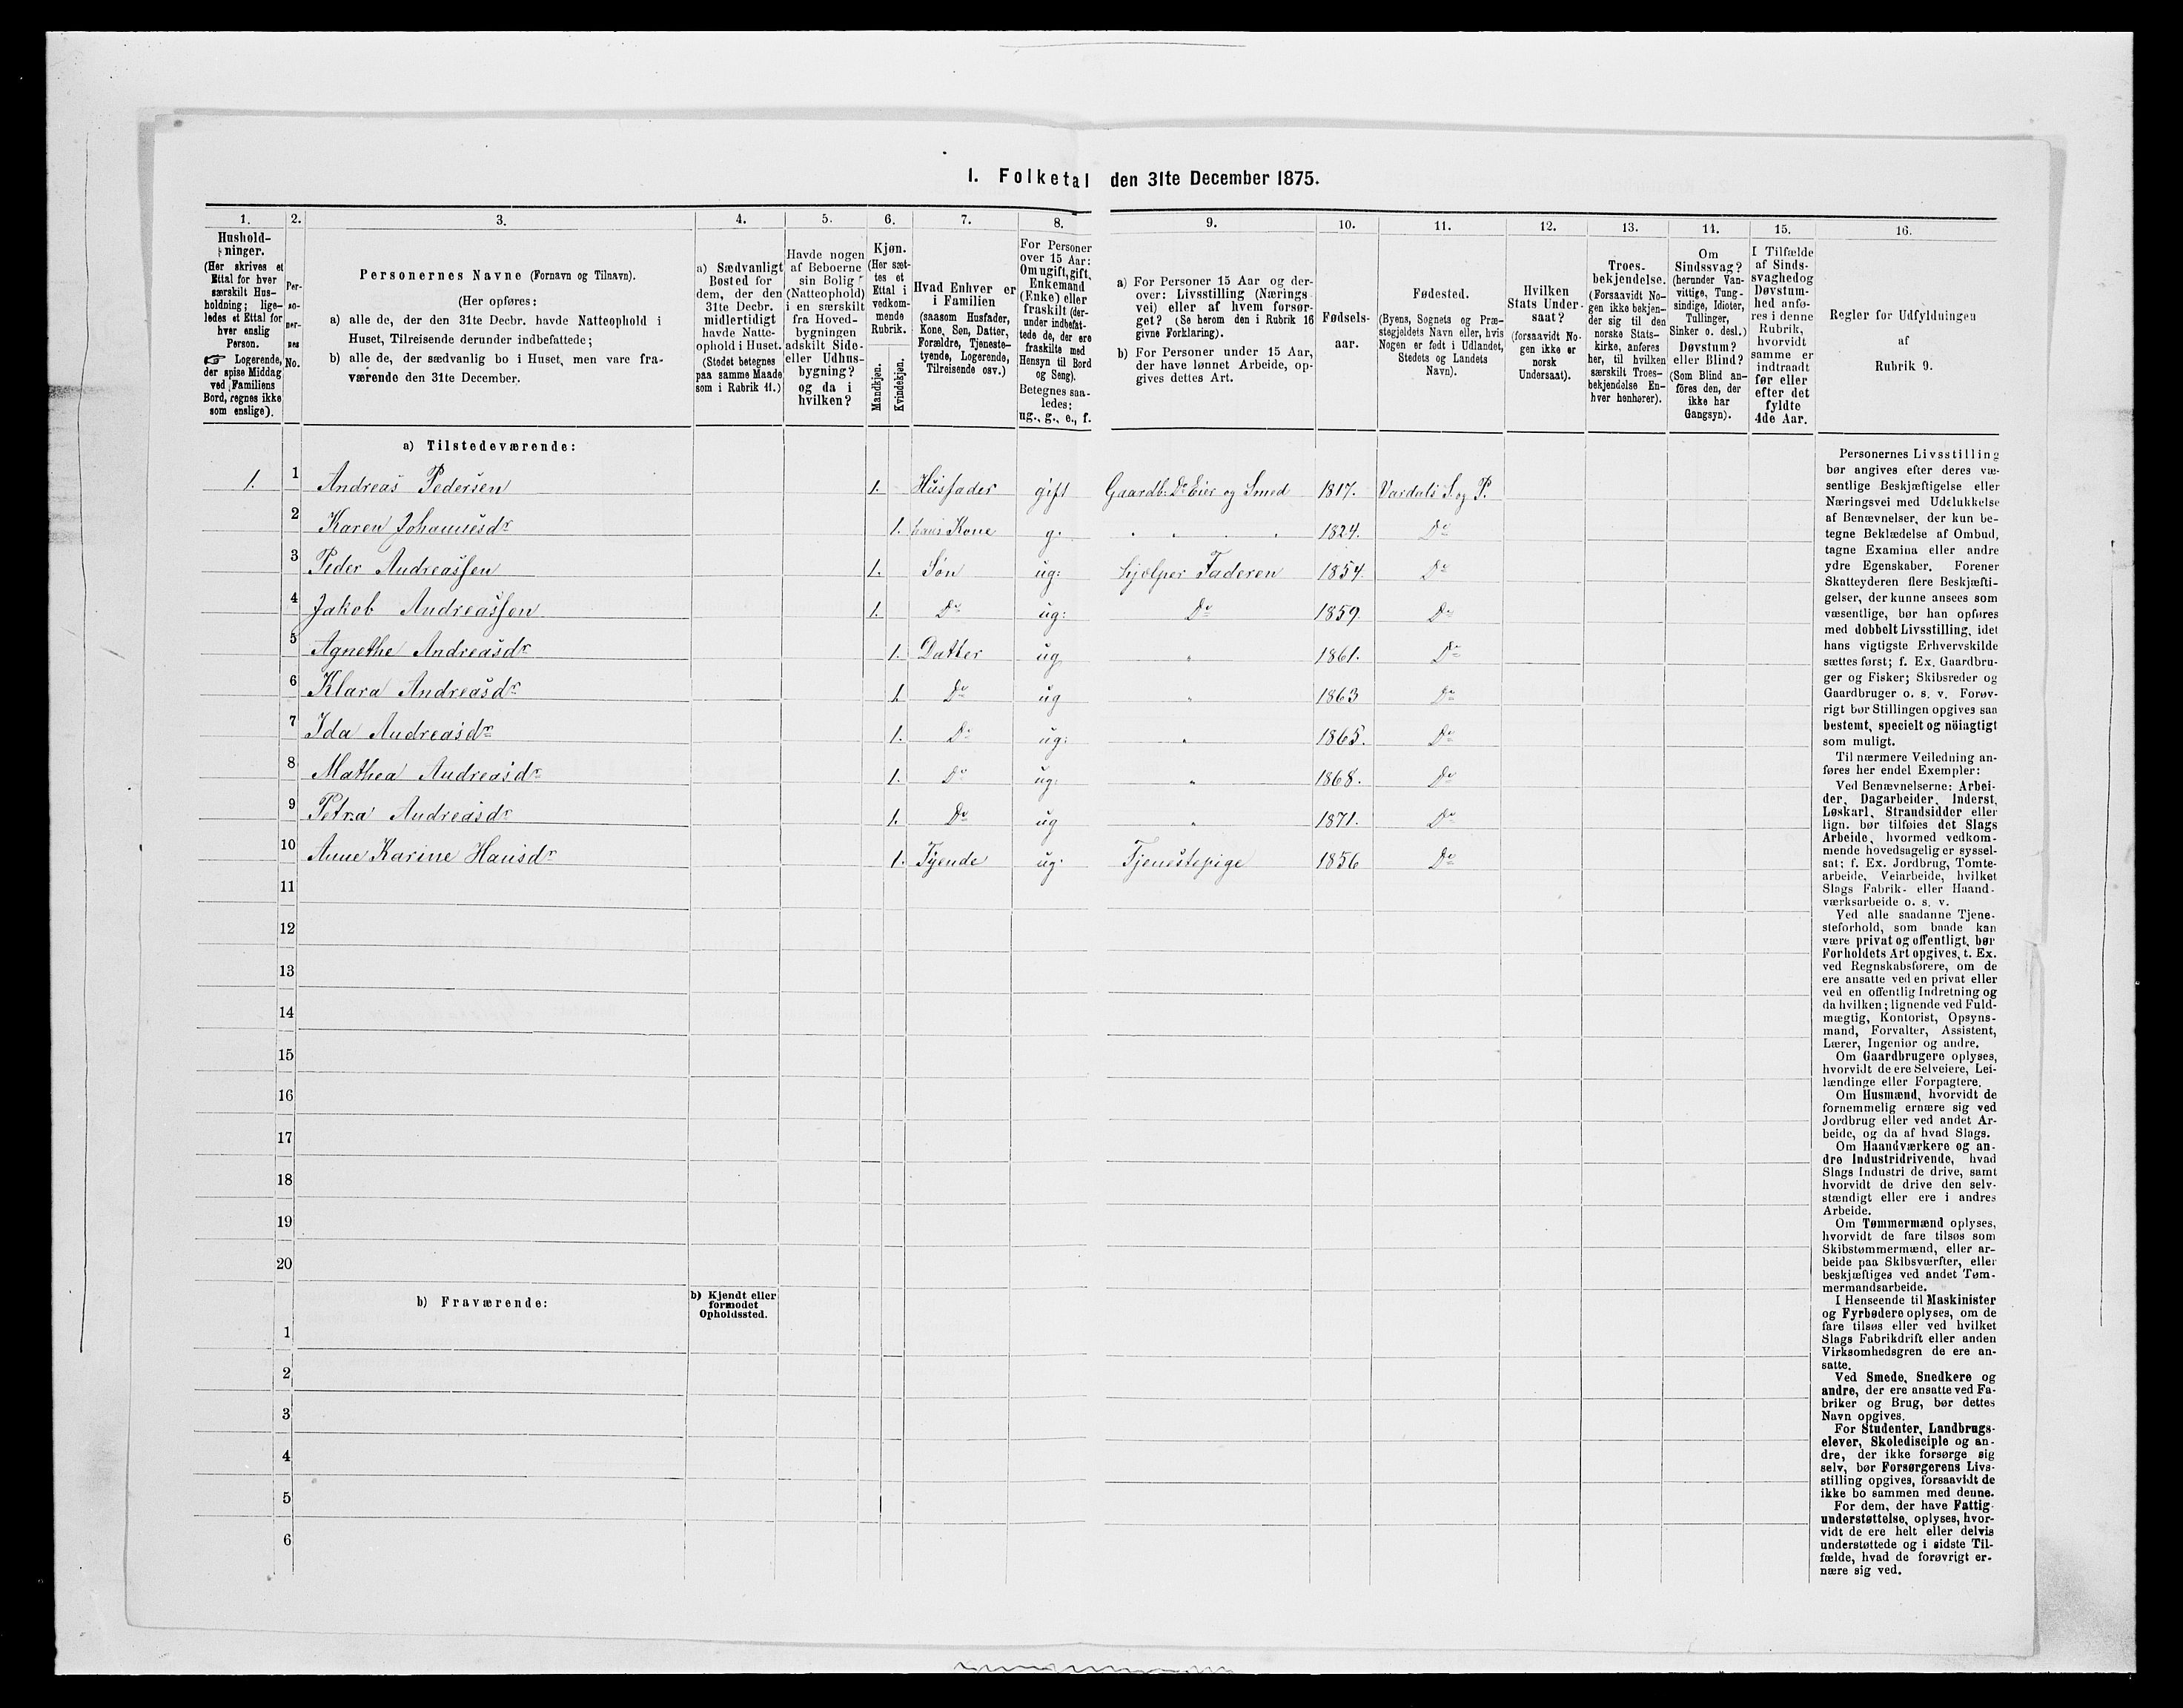 1. Folketal den 31te December 1875.
1. 2. 3. 4. 5. 6. 7. 8. 9. 10. 11. 12. 13. 14. 15. 16.
Hushold-
ninger.
(Her skrives et
Ettal for hver
særskilt Hus-
holdning; lige-
ledes et Ettal for
hver enslig
Person.
☞ Logerende,
der spise Middag
ved Familiens
Bord, regnes ikke
som enslige).
Per-
so-
ner-
nes
No.
Personernes Navne (Fornavn og Tilnavn).
(Her opføres:
a) alle de, der den 31te Decbr. havde Natteophold i
Huset, Tilreisende derunder indbefattede;
b) alle de, der sædvanlig bo i Huset, men vare fra-
værende den 31te December.
a) Sædvanligt
Bosted for
dem, der den
31te Decbr.
midlertidigt
havde Natte-
ophold i Huset.
(Stedet betegnes
paa samme Maade
som i Rubrik 11.)
Havde nogen
af Beboerne
sin Bolig
(Natteophold)
i en særskilt
fra Hoved-
bygningen
adskilt Side-
eller Udhus-
bygning?
og da i
hvilken?
Kjøn.
(Her sæt-
tes et
Ettal i
vedkom-
mende
Rubrik.
Mandkjøn.
Kvindekjøn.
Hvad Enhver er
i Familien
(saasom Husfader,
Kone, Søn, Datter,
Forældre, Tjeneste-
tyende, Logerende,
Tilreisende osv.)
For Personer
over 15 Aar:
Om ugift, gift,
Enkemand
(Enke) eller
fraskilt (der-
under indbefat-
tede de, der ere
fraskilte med
Hensyn til Bord
og Seng).
Betegnes saa-
ledes:
ug., g., e., f.
a) For Personer 15 Aar og der-
over: Livsstilling (Nærings-
vei) eller af hvem forsør-
get? (Se herom den i Rubrik 16
givne Forklaring).
b) For Personer under 15 Aar,
der have lønnet Arbeide, op-
gives dettes Art.
Fødsels-
aar.
Fødested.
(Byens, Sognets og Præ-
stegjeldets Navn eller, hvis
Nogen er født i Udlandet,
Stedets og Landets
Navn).
Hvilken
Stats Under-
saat?
(forsaavidt No-
gen ikke er
norsk
Undersaat).
Troes-
bekjendelse.
(Forsaavidt No-
gen ikke bekjen-
der sig til den
norske Stats-
kirke, anføres
her, til hvilken
særskilt Troes-
bekjendelse En-
hver henhører).
Om
Sindssvag?
(herunder Van-
vittige, Tung-
sindige, Idioter,
Tullinger,
Sinker o. desl.)
Døvstum?
eller Blind?
(Som Blind an-
føres den, der
ikke har
Gangsyn).
I Tilfælde
af Sinds-
svaghedog
Døvstum-
hed anfø-
res i denne
Rubrik,
hvorvidt
samme er
indtraadt
før eller
efter det
fyldte
4de Aar.
Regler for Udfyldningen
af
Rubrik 9.
a) Tilstedeværende:
1. 1 Andreas Pedersen 1. Husfader gift Gaardb: Do Eier og Smed 1817. Vardals S. og P.
2 Karen Johannesdr 1. hans Kone g. " " " " 1824. Do
3 Peder Andreassen 1. Søn ug: hjælper Faderen 1854. Do
4 Jakob Andreassen 1. Do ug: Do 1859. Do
5 Agnethe Andreasdr 1. Datter ug " 1861. Do
6 Klara Andreasdr 1. Do ug " 1863 Do
7 Ida Andreasdr 1. Do ug: " 1865. Do
8 Mathea Andreasdr 1. Do ug: " 1868. Do
9 Petra Andreasdr 1. Do ug " 1871. Do
10 Anne Karine Hansdr 1. Tyende ug. Tjenestepige 1856 Do
11
12
13
14
15
16
17
18
19
20
b) Fraværende:
b) Kjendt eller
formodet
Opholdssted.
1
2
3
4
5
6
Personernes Livsstilling
bør angives efter deres væ-
sentlige Beskjæftigelse eller
Næringsvei med Udelukkelse
af Benævnelser, der kun be-
tegne Beklædelse af Ombud,
tagne Examina eller andre
ydre Egenskaber. Forener
Skatteyderen flere Beskjæfti-
gelser, der kunne ansees som
væsentlige, bør han opføres
med dobbelt Livsstilling, idet
hans vigtigste Erhvervskilde
sættes først; f. Ex. Gaardbru-
ger og Fisker; Skibsreder og
Gaardbruger o. s. v. Forøv-
rigt bør Stillingen opgives saa
bestemt, specielt og nöiagtigt
som muligt.
Til nærmere Veiledning an-
føres her endel Exempler:
Ved Benævnelserne: Arbei-
der, Dagarbeider, Inderst,
Løskarl, Strandsidder eller
lign. bør tilføies det Slags
Arbeide, hvormed vedkom-
mende hovedsagelig er syssel-
sat; f. Ex. Jordbrug, Tomte-
arbeide, Veiarbeide, hvilket
Slags Fabrik- eller Haand-
værksarbeide o. s. v.
Ved alle saadanne Tjene-
steforhold, som baade kan
være privat og offentligt, bør
Forholdets Art opgives, t. Ex.
ved Regnskabsførere, om de
ere ansatte ved en privat eller
ved en offentlig Indretning og
da hvilken; lignende ved Fuld-
mægtig, Kontorist, Opsyns-
mand, Forvalter, Assistent,
Lærer, Ingeniør og andre.
Om Gaardbrugere oplyses,
hvorvidt de ere Selveiere, Lei-
lændinge eller Forpagtere.
Om Husmænd, hvorvidt de
fornemmelig ernære sig ved
Jordbrug eller ved andet Ar-
beide, og da af hvad Slags.
Om Haandværkere og an-
dre Industridrivende, hvad
Slags Industri de drive, samt
hvorvidt de drive den selv-
stændigt eller ere i andres
Arbeide.
Om Tømmermænd oplyses,
hvorvidt de fare tilsøs som
Skibstømmermænd, eller ar-
beide paa Skibsværfter, eller
beskjæftiges ved andet Tøm-
mermandsarbeide.
I Henseende til Maskinister
og Fyrbødere oplyses, om de
fare tilsøs eller ved hvilket
Slags Fabrikdrift eller anden
Virksomhedsgren de ere an-
satte.
Ved Smede, Snedkere og
andre, der ere ansatte ved Fa-
briker og Brug, bør dettes
Navn opgives.
For Studenter, Landbrugs-
elever, Skoledisciple og an-
dre, der ikke forsørge sig
selv, bør Forsørgerens Livs-
stilling opgives, forsaavidt de
ikke bo sammen med denne.
For dem, der have Fattig-
understøttelse, oplyses, hvor-
vidt de ere helt eller delvis
understøttede og i sidste Til-
fælde, hvad de forøvrigt er-
nære sig ved.